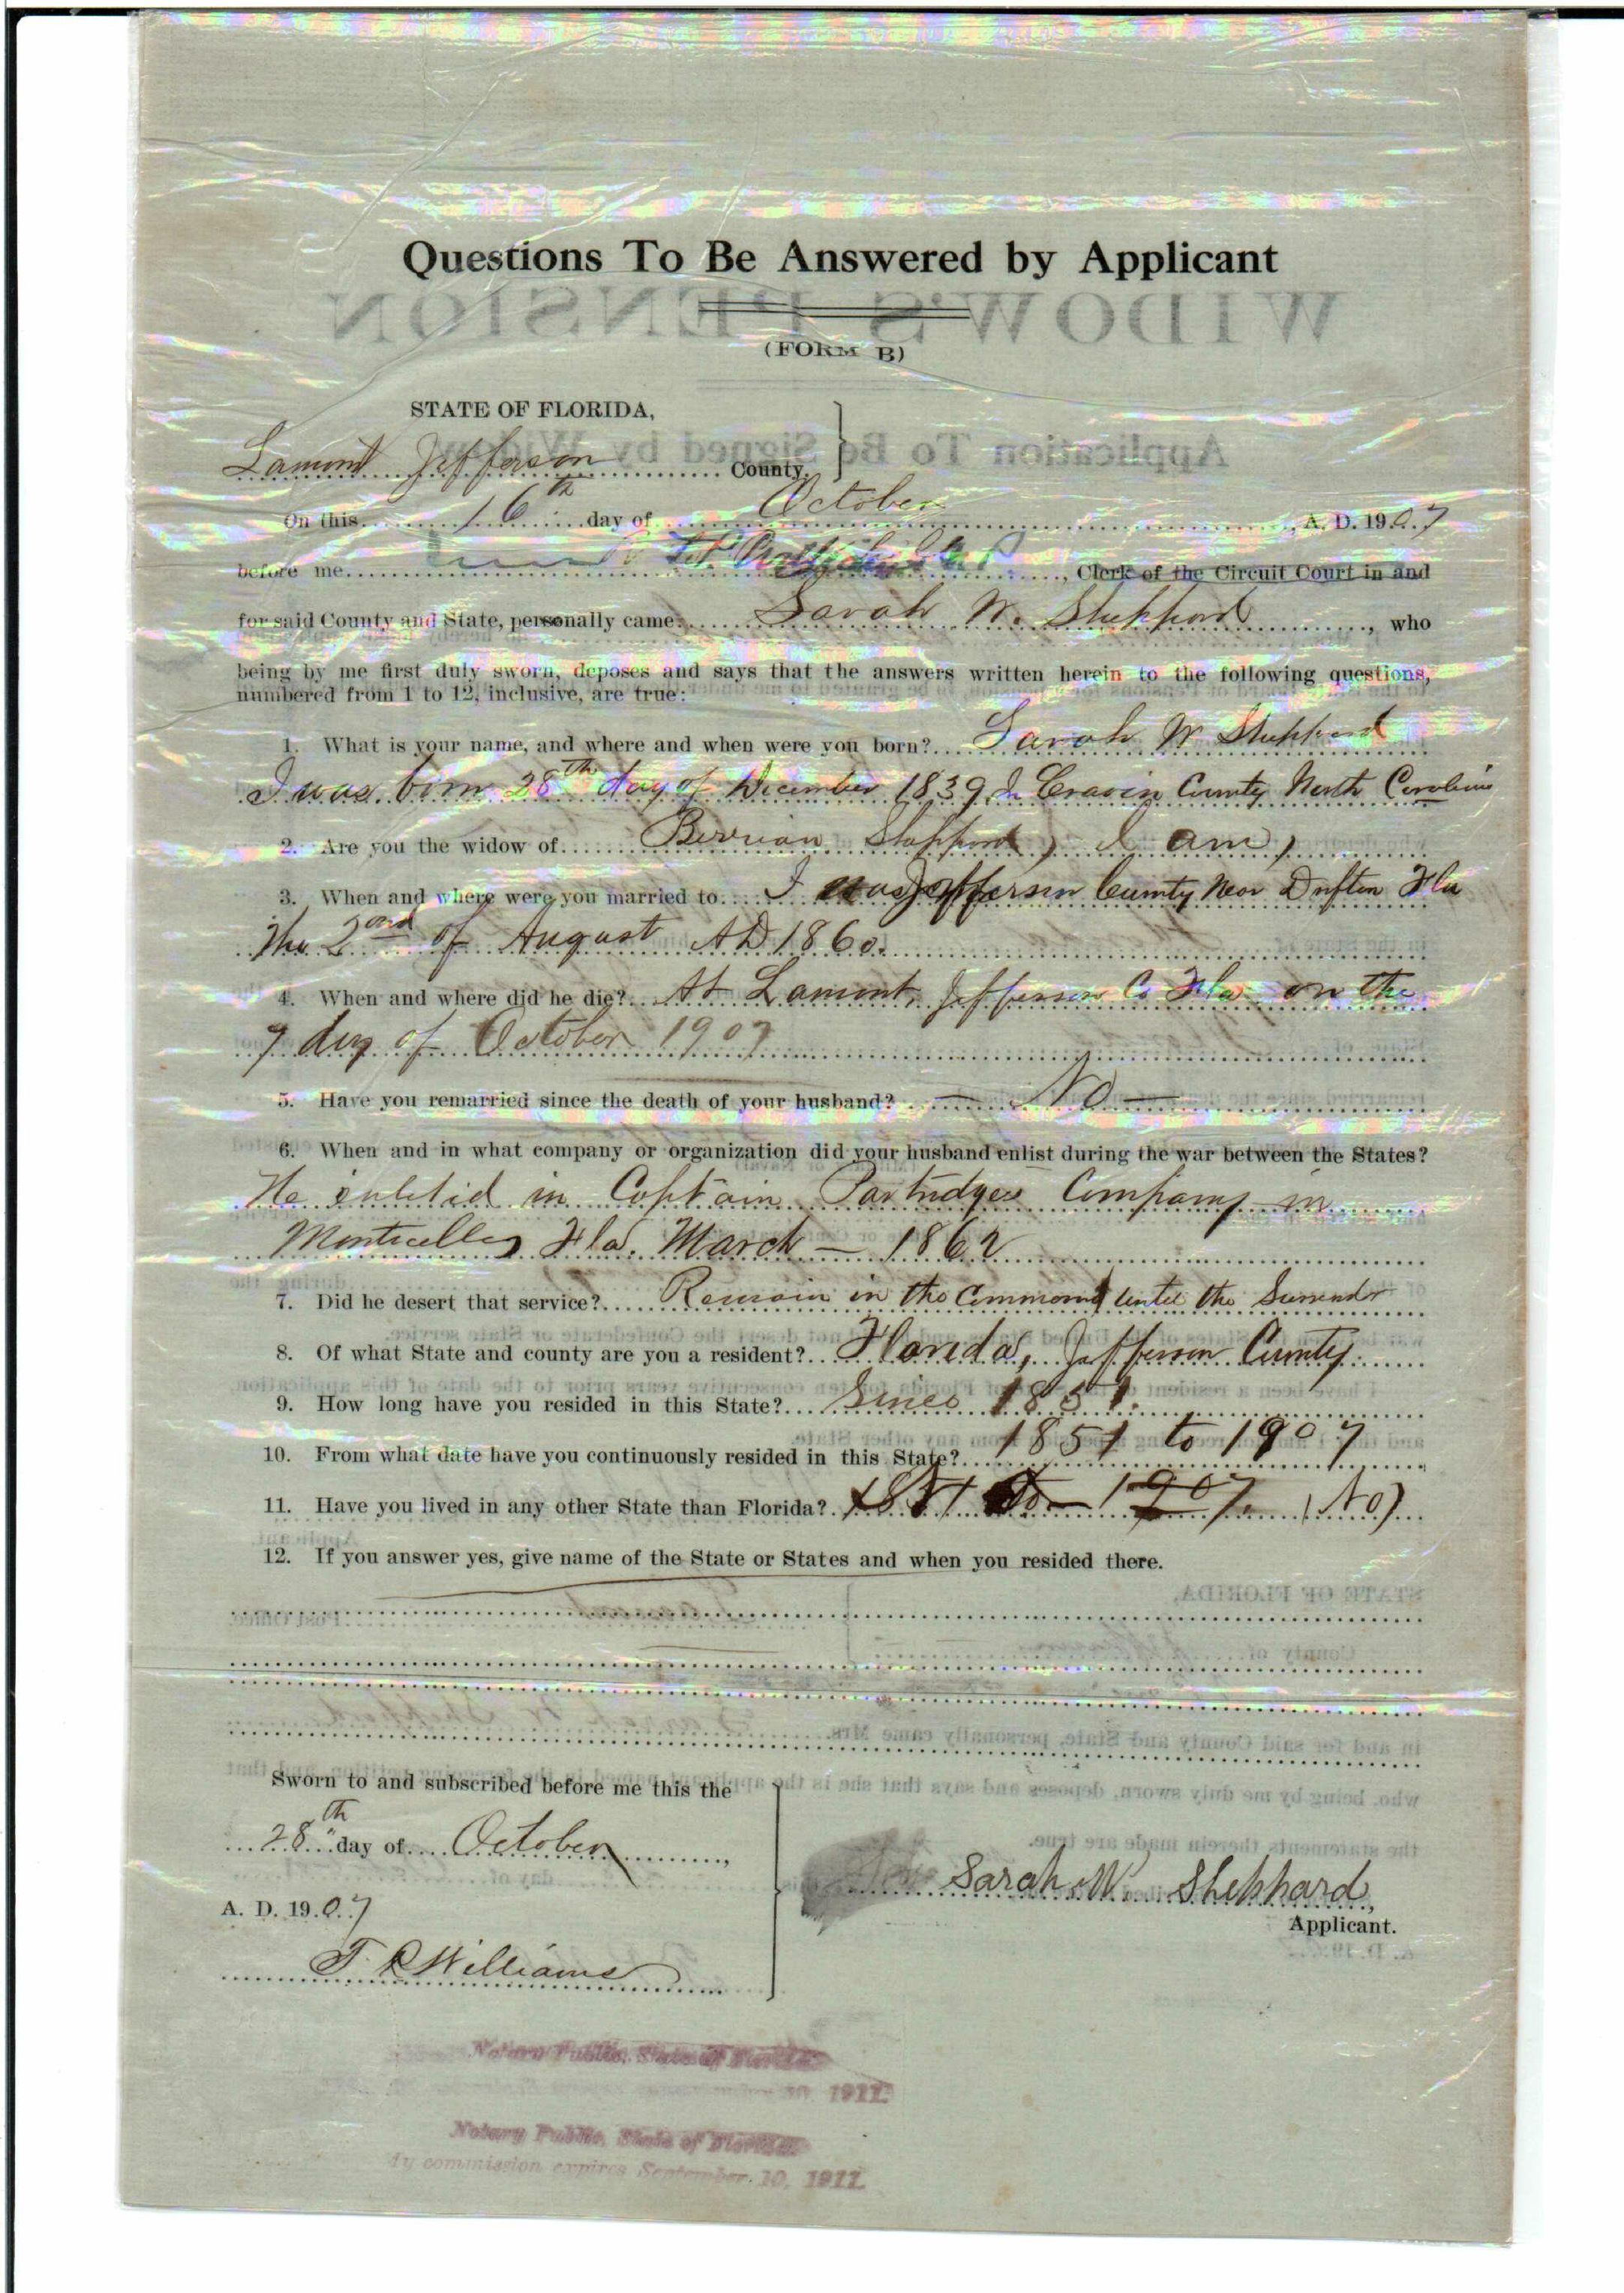 Questions To Be Answered by Applicant
(FORM B)
STATE OF FLORIDA,
Lamont Jefferson County.
On this 16th day of October, A. D. 1907
before me, Clerk of the Circuit Court in and
for said County and State, personally came Sarah W. Sheppard, who
being by me first duly sworn, deposes and says that the answers written herein to the following questions,
numbered from 1 to 12, inclusive, are true:
1. What is your name, and where and when were you born? Sarah W Sheppard
I was born 28th day of December 1839 In Cravin County North Carolina
2. Are you the widow of Berrian Sheppard, I am,
3. When and where were you married to I was Jefferson County Near Drifton Fla
the 2ond of August AD 1860.
4. When and where did he die? At Lamont, Jefferson Co Fla on the
9 day of October 1907
5. Have you remarried since the death of your husband? — No —
6. When and in what company or organization did your husband enlist during the war between the States?
He inlistid in Coptain Partridges Company in
Monticello, Fla. March — 1862
7. Did he desert that service? Remain in the Command until the Surrender
8. Of what State and county are you a resident? Florida, Jefferson County.
9. How long have you resided in this State? Since 1851.
10. From what date have you continuously resided in this State? 1851 to 1907
11. Have you lived in any other State than Florida? 1851 to 1907. (No)
12. If you answer yes, give name of the State or States and when you resided there.
Sworn to and subscribed before me this the
28th day of October,
A. D. 1907
Sarah W. Shephard,
Applicant.
T. R Williams
Notary Public, State of Florida
1911.
Notary Public, State of Florida
My commission expires September 10, 1911.